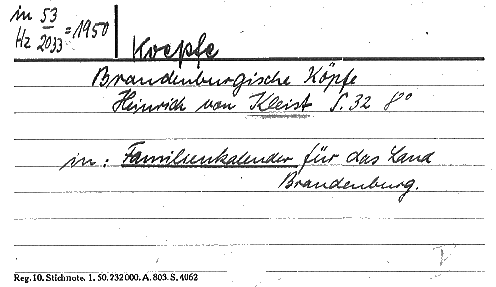 in 53
Hz 2033 = 1950
Koepfe
Brandenburgische Köpfe
Heinrich von Kleist S. 32 8°
in: Familienkalender für das Land
Brandenburg.
Reg. 10. Stichnote. 1. 50. 232 000. A. 803. S. 4062